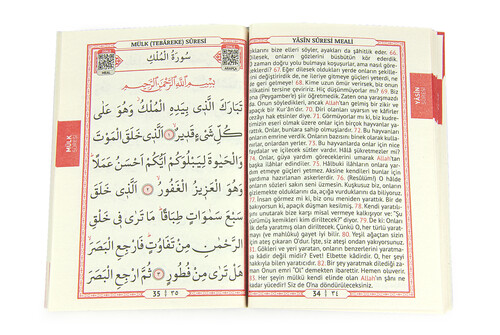 MÜLK (TEBÂREKE) SÛRESİ
سُورَةُ الْمُلْكِ
بِسْمِ اللّٰهِ الرَّحْمٰنِ الرَّحِيمِ
تَبَارَكَ الَّذِى بِيَدِهِ الْمُلْكُ وَهُوَ عَلٰى
كُلِّ شَىْءٍ قَدِيرٌ ۞ اَلَّذِى خَلَقَ الْمَوْتَ
وَالْحَيٰوةَ لِيَبْلُوَكُمْ اَيُّكُمْ اَحْسَنُ عَمَلًا
وَهُوَ الْعَزِيزُ الْغَفُورُ ۞ اَلَّذِى خَلَقَ
سَبْعَ سَمٰوَاتٍ طِبَاقًا مَا تَرٰى فِى خَلْقِ
الرَّحْمٰنِ مِنْ تَفَاوُتٍ فَارْجِعِ الْبَصَرَ
هَلْ تَرٰى مِنْ فُطُورٍ ۞ ثُمَّ ارْجِعِ الْبَصَرَ
35 | ٣٥
MÜLK
SÛRESİ
YÂSÎN SÛRESİ MEALİ
klarını bize elleri söyler, ayakları da şâhitsik eder. 66.
O zaman doğru yolu bulmaya koşuşurlar, ama nasıl göre-
67. Eğer dilesek oldukları yerde onların şekille-
rini değiştirirdik de, ne ileriye gitmeye güçleri yeterdi, ne
geri gelmeye! 68. Kime uzun ömür verirsek, biz onun
tersine çeviririz. Hiç düşünmüyorlar mı? 69. Biz
(Peygamber'e) şiir öğretmedik. Zaten ona yaraşmazdı
Onun söyledikleri, ancak Allah'tan gelmiş bir zikir ve
apaçık bir Kur'ân'dır. 70. Diri olanları uyarsın ve kâfirler
azâbı hak etsinler diye. 71. Görmüyorlar mı ki, biz kud-
retimizin eseri olmak üzere onlar için birçok hayvanlar ya-
rattık. Onlar, bunlara sahip olmuşlardır. 72. Bu hayvanları
onların emrine verdik.
73. Bu hayvanlarda onlar için nice
faydalar ve içilecek sütler vardır. Hâlâ şükretmezler mi?
74. Onlar, güya yardım göreceklerini umarak Allah'tan
başka ilahlar edindiler. 75. Hâlbuki ilahların onlara yardım
etmeye güçleri yetmez. Aksine kendileri bunlar için
yardıma hazırlanan askerlerdir. 76. (Resûlüm!) O hâlde
onların sözleri sakın seni üzmesin. Kuşkusuz biz, onların
gizlemekte olduklarını da, açığa vurduklarını da biliyoruz.
77. İnsan görmez mi ki, biz onu meniden yarattık. Bir de
bakıyorsun ki, apaçık düşman kesilmiş. 78. Kendi yaratılı-
şını unutarak bize karşı misal vermeye kalkışıyor ve: "Şu
çürümüş kemikleri kim diriltecek?" diyor. 79. De ki: Onları
ilk defa yaratmış olan diriltecek. Çünkü O, her türlü yarat-
mayı gayet iyi bilir. 80. Yeşil ağaçtan sizin
için ateş çıkaran O'dur. İşte, siz ateşi ondan yakıyorsunuz.
81. Gökleri ve yeri yaratan, onların benzerlerini yaratma-
ya kâdir değil midir? Evet! Elbette kâdirdir. O, her şeyi
hakkıyla bilen yaratıcıdır. 82. Bir şey yaratmak istediği za-
man Onun emri "Ol" demekten ibarettir. Hemen oluverir.
83. Her şeyin mülkü kendi elinde olan Allah'ın şânı ne
kadar yücedir! Siz de O'na döndürüleceksiniz.
34 | ٣٤
YÂSÎN
SÛRESİ